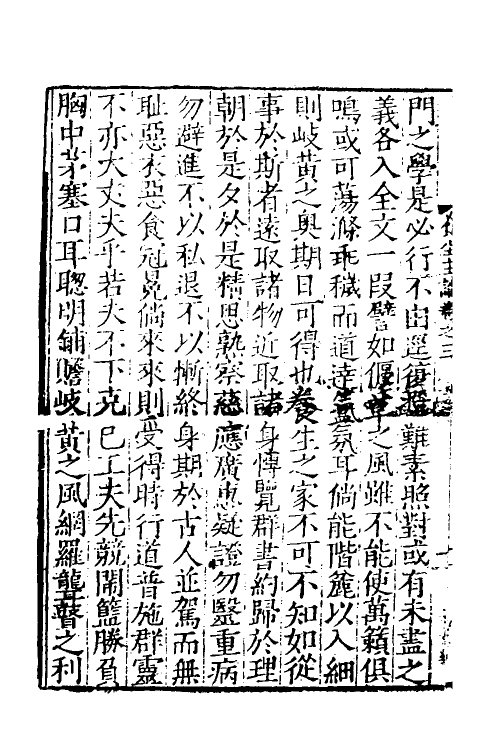 門之學是必行不由逕復㨿難素照對或有未盡之
義各入全文一段譬如偃草之風雖不能使萬籟俱
鳴或可蕩滌乖穢而道達氤氳耳倘能階麓以入細
則岐黃之奥期日可得也養生之家不可不知如從
事於斯者遠取諸物近取諸身慱覽群書約歸於理
朝於是夕於是精思熟察慈應廣惠疑證勿毉重病
勿避進不以私退不以慚終身期於古人並駕而無
耻惡衣惡食冠冕倘來來則受得時行道普施群靈
不亦大丈夫乎若夫不下克已工夫先競閙籃勝負
胸中茅塞口耳聰明鋪贍岐黃之風網羅聾瞽之利